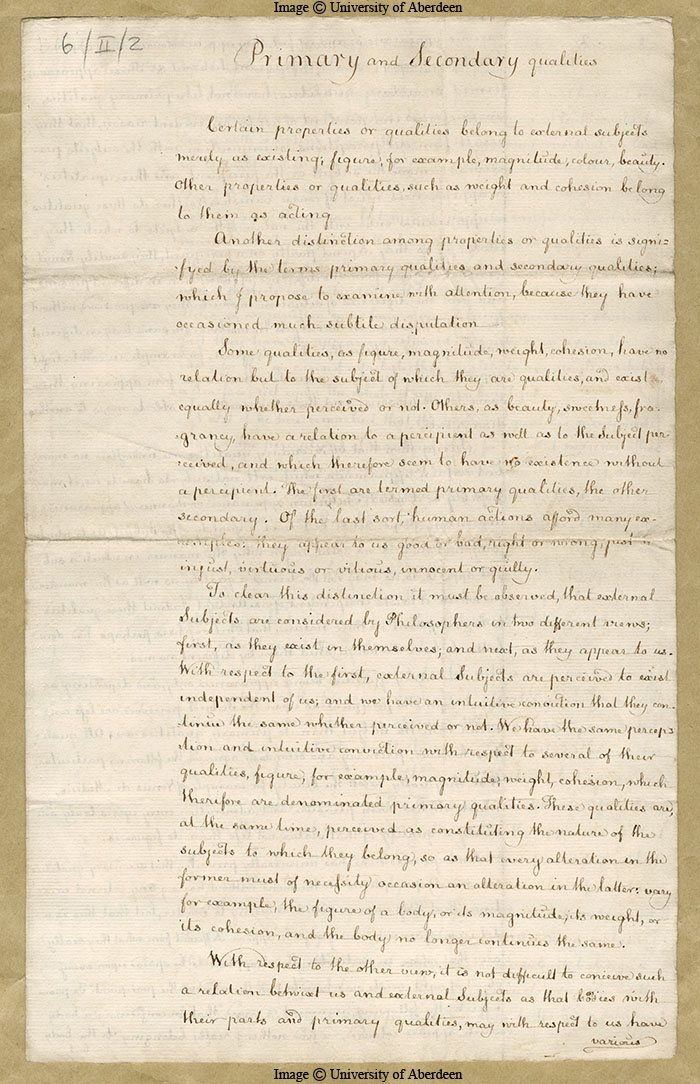 Image © University of Aberdeen
6/II/2
Primary and Secondary qualities
Certain properties or qualities belong to external subjects
merely as existing; figure, for example, magnitude, colour, beauty.
Other properties or qualities, such as weight and cohesion belong
to them as acting
Another distinction among properties or qualities is signi-
-fyed by the terms primary qualities and secondary qualities;
which I propose to examine with attention, because they have
occasioned much subtile disputation
Some qualities, as figure, magnitude, weight, cohesion, have no
relation but to the subject of which they are qualities, and exist
equally whether perceived or not. Others, as beauty, sweetness, fra-
-grancy, have a relation to a percipient as well as to the Subject per-
-ceived, and which therefore seem to have no existence without
a percipient. The first are termed primary qualities, the other
secondary. Of the last sort, human actions afford many ex-
-amples: they appear to us good or bad, right or wrong, just
injust, virtuous or vitious, innocent or guilty.
To clear this distinction it must be observed, that external
Subjects are considered by Philosophers in two different views;
first, as they exist in themselves; and next, as they appear to us.
With respect to the first, external Subjects are perceived to exist
independent of us; and we have an intuitive conviction that they con-
-tinue the same whether perceived or not. We have the same percep-
-tion and intuitive conviction with respect to several of their
qualities, figure, for example, magnitude, weight, cohesion, which
therefore are denominated primary qualities. These qualities are,
at the same time, perceived as constituting the nature of the
subjects to which they belong, so as that every alteration in the
former must of necessity occasion an alteration in the latter: vary
for example, the figure of a body, or its magnitude, its weight, or
its cohesion, and the body no longer continues the same.
With respect to the other view, it is not difficult to conceive such
a relation betwixt us and external Subjects as that bodies with
their parts and primary qualities, may with respect to us have
various
Image © University of Aberdeen